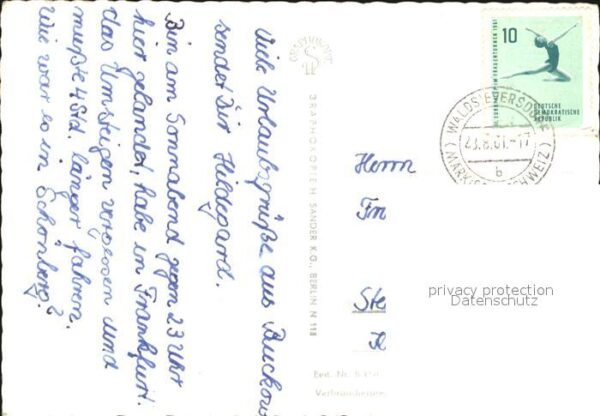 Viele Urlaubsgrüße aus Buckow
sendet Dir Hildegard.
Bin am Sonnabend gegen 23 Uhr
hier gelandet, habe in Frankfurt
das Umsteigen vergessen und
mußte 4 Std. länger fahren.
Wie war es in Schönberg?
GRAPHOKOPIE H. SANDER K.G., BERLIN N 113
Best. Nr.
Verbraucherpreis
10
TURNEN 1961
DEUTSCHE
DEMOKRATISCHE
REPUBLIK
WALDSIEVERSDORF
23.8.61.-17
(MÄRKISCHE SCHWEIZ)
b
Herrn
Ste
privacy protection
Datenschutz